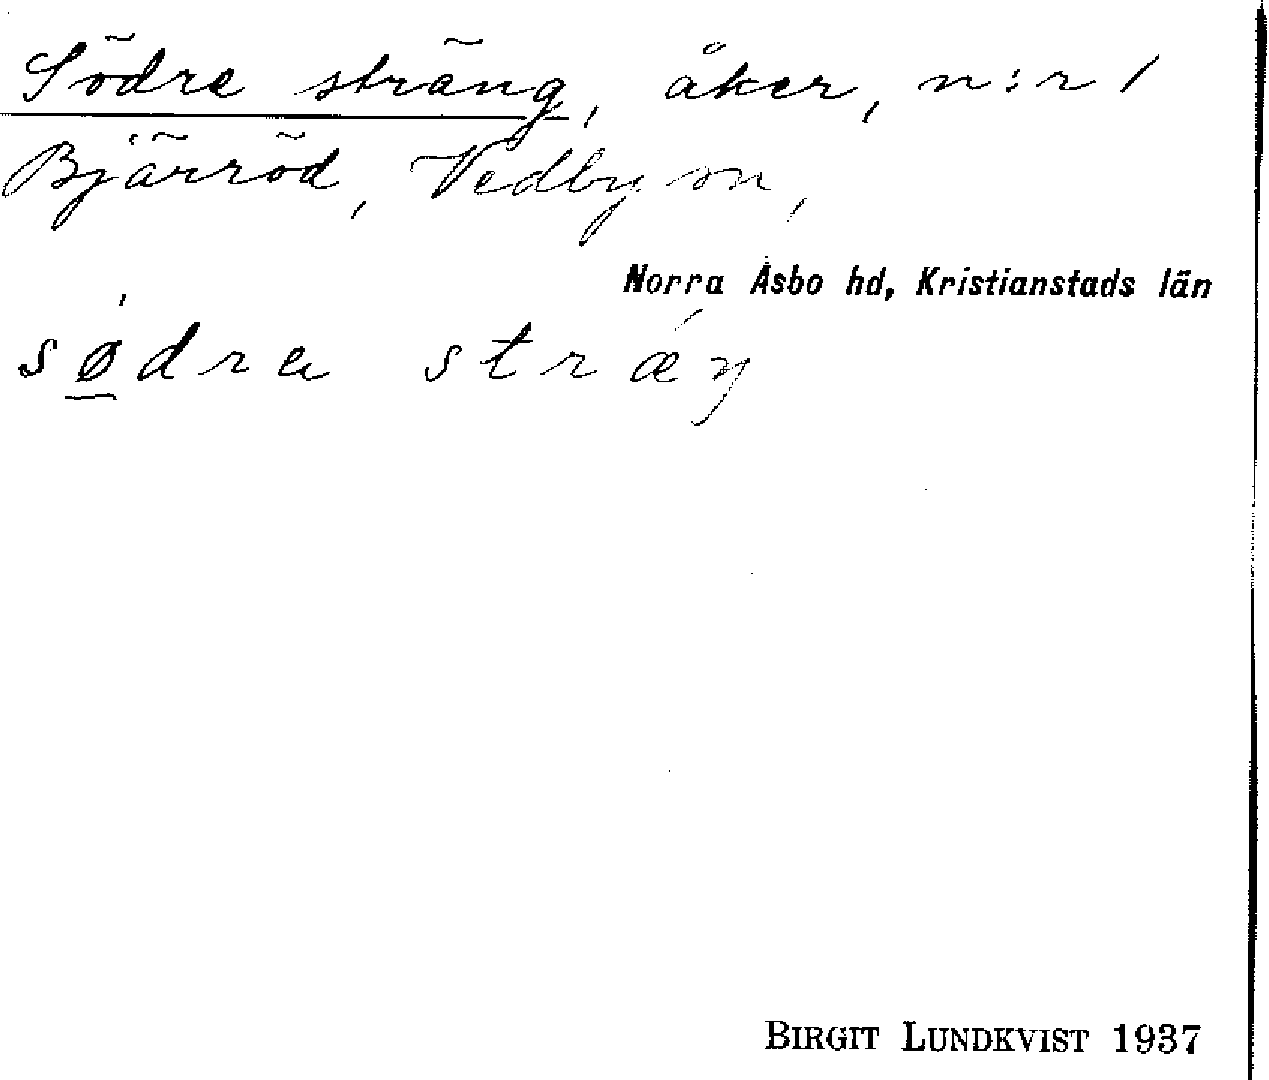 Södre sträng, åker, n:r 1
Bjärröd, Vedby sn,
Norra Åsbo hd, Kristianstads län
sǿ̲dra strǽŋ
BIRGIT LUNDKVIST 1937